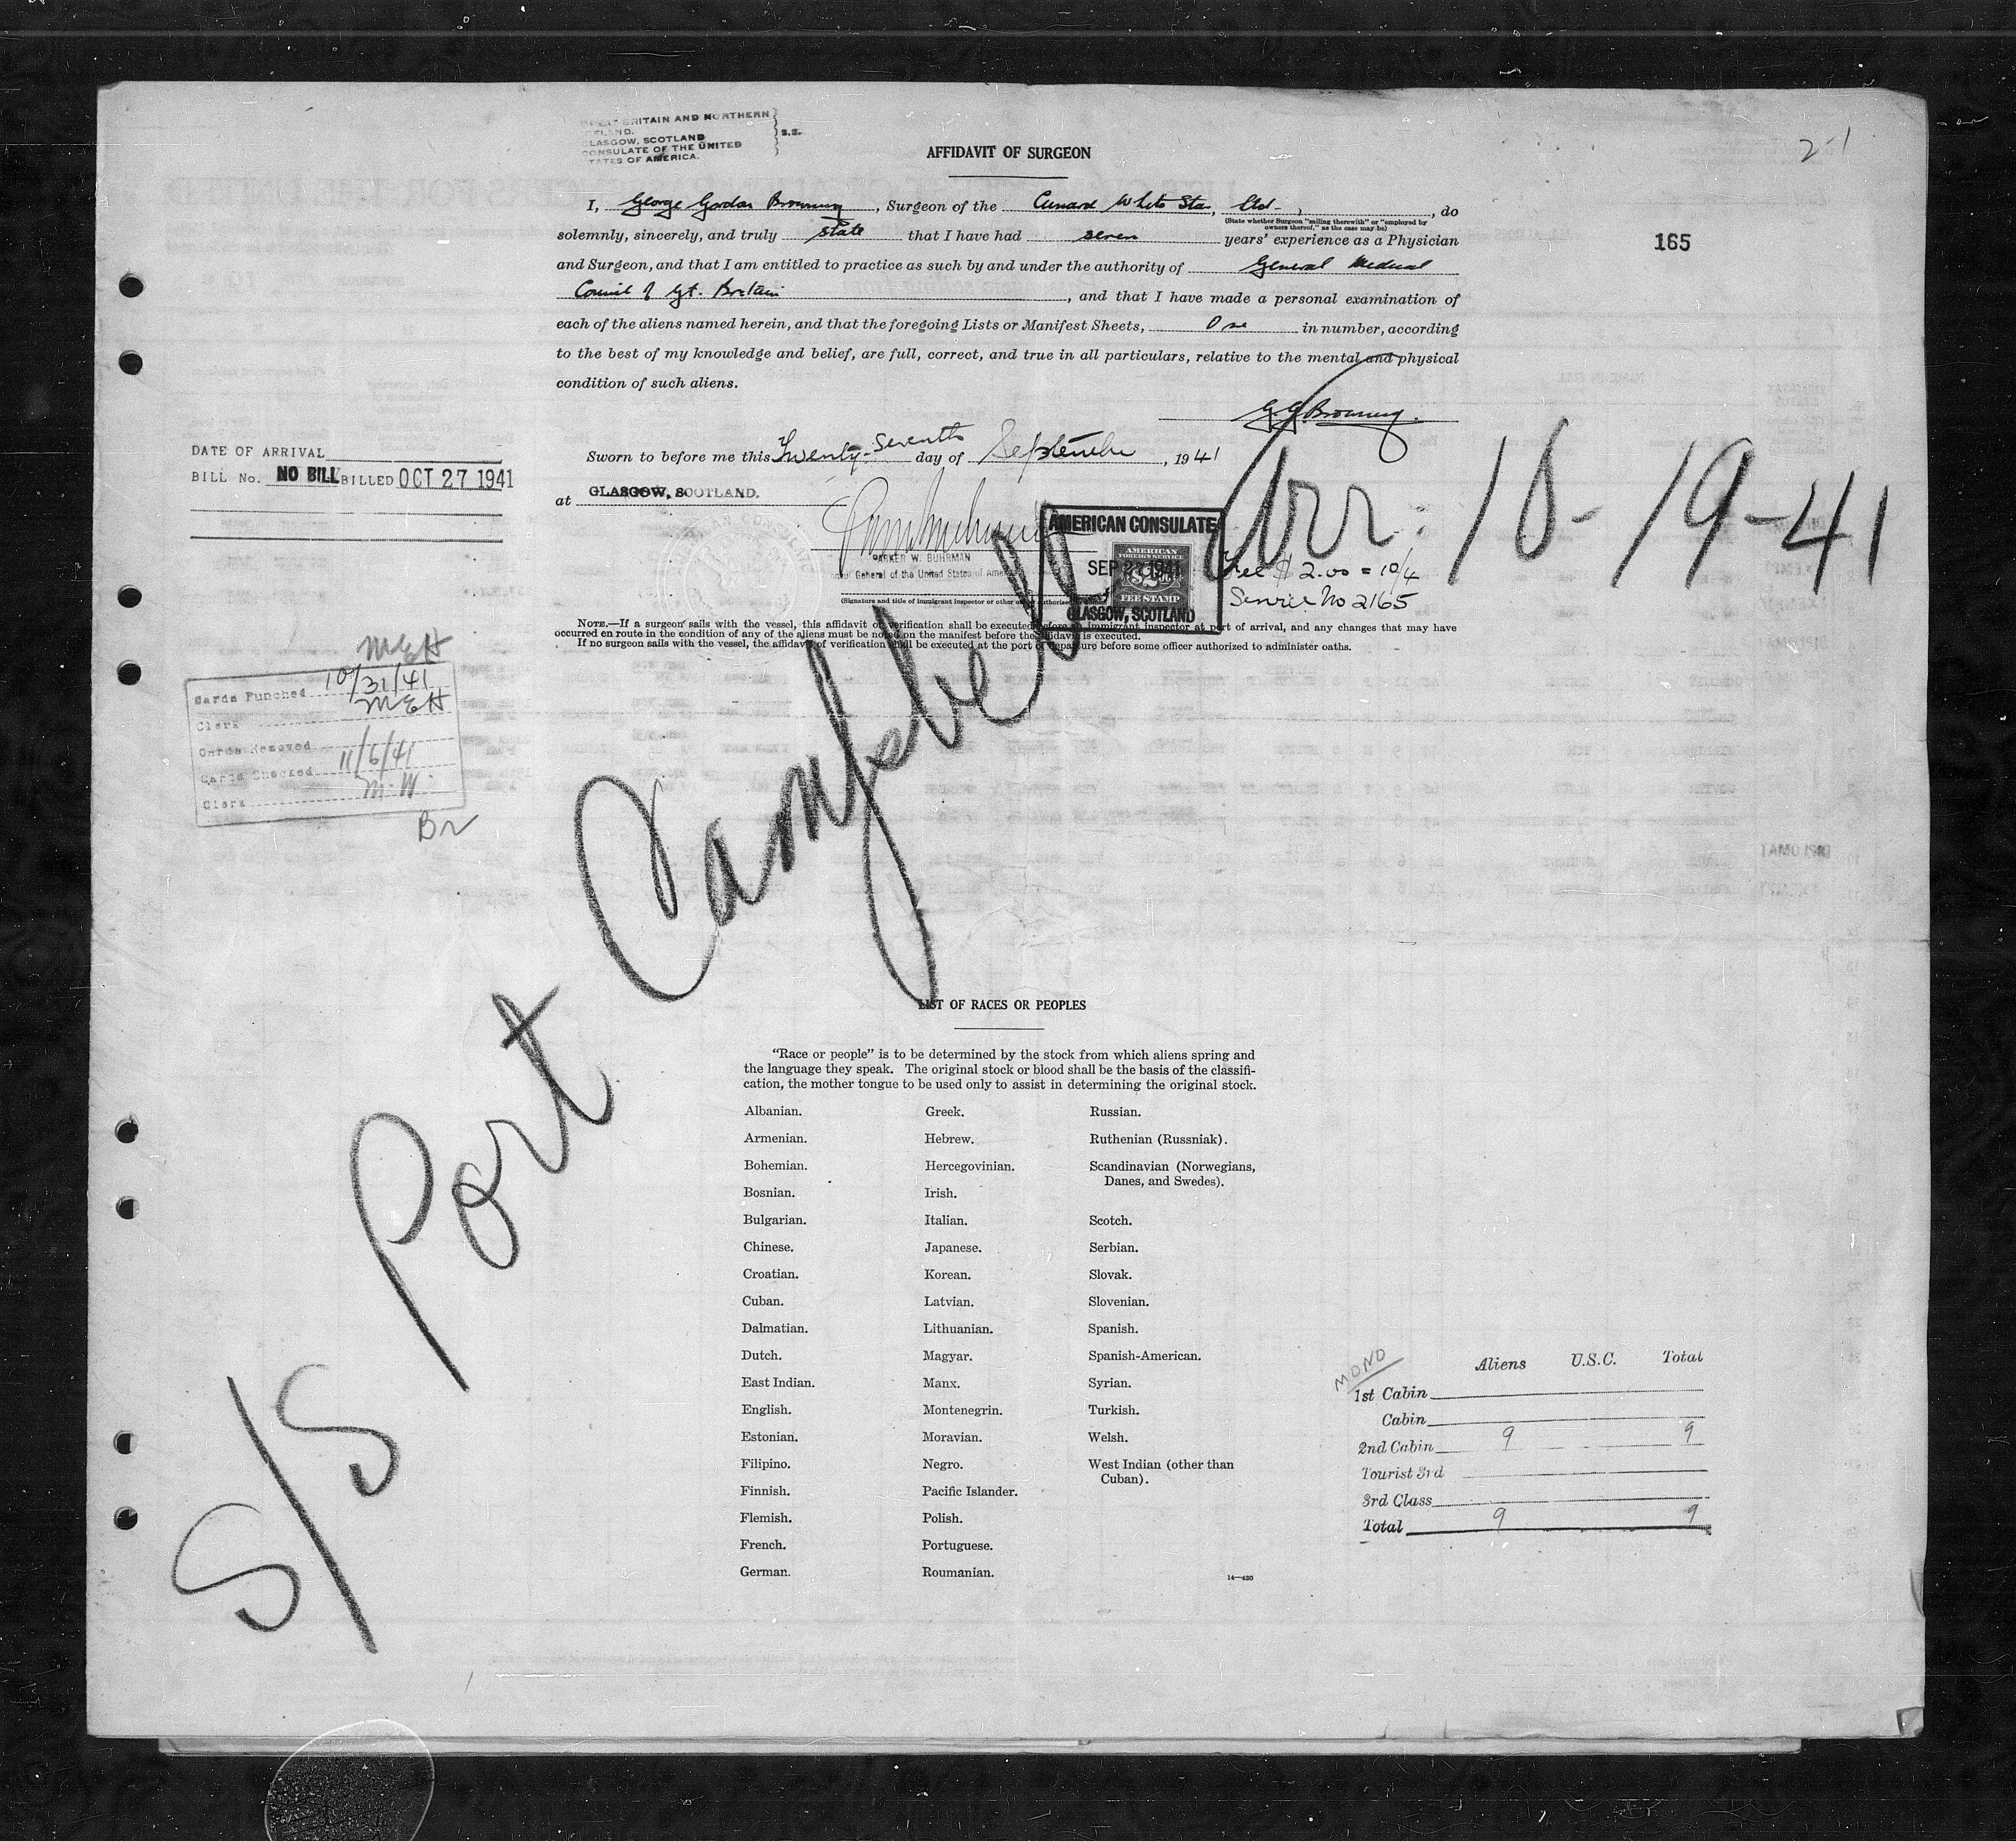 BRITAIN AND NORTHERN
GLASGOW, SCOTLAND
CONSULATE OF THE UNITED
STATES OF AMERICA.
S.S.
2-1
AFFIDAVIT OF SURGEON
I, George Gordon Browning, Surgeon of the Cunard White Star, Ltd., do
(State whether Surgeon "sailing therewith" or "employed by
owners thereof," as the case may be)
165
solemnly, sincerely, and truly state that I have had seven years' experience as a Physician
and Surgeon, and that I am entitled to practice as such by and under the authority of General Medical
Council of Gt. Britain, and that I have made a personal examination of
each of the aliens named herein, and that the foregoing Lists or Manifest Sheets, One in number, according
to the best of my knowledge and belief, are full, correct, and true in all particulars, relative to the mental and physical
condition of such aliens.
G.G. Browning.
DATE OF ARRIVAL
BILL No. NO BILL BILLED OCT 27 1941
Sworn to before me this Twenty-Seventh day of September, 1941
at GLASGOW, SCOTLAND.
Arr: 10-19-41
PARKER W. BUHRMAN
General of the United States of America
(Signature and title of immigrant inspector or other officer authorized
AMERICAN CONSULATE
AMERICAN
FOREIGN SERVICE
SEP 27 1941
$2
FEE STAMP
GLASGOW, SCOTLAND
Fee $2.00 = 10/4
Service No 2165
NOTE.—If a surgeon sails with the vessel, this affidavit of verification shall be executed before an immigrant inspector at port of arrival, and any changes that may have
occurred en route in the condition of any of the aliens must be noted on the manifest before the affidavit is executed.
If no surgeon sails with the vessel, the affidavit of verification shall be executed at the port of departure before some officer authorized to administer oaths.
MEH
Cards Punched 10/31/41
Clerk MEH
Cards Removed
Cards Checked 11/6/41
Clerk M.W.
Br
S/S Port Campbell
LIST OF RACES OR PEOPLES
"Race or people" is to be determined by the stock from which aliens spring and
the language they speak. The original stock or blood shall be the basis of the classifi-
cation, the mother tongue to be used only to assist in determining the original stock.
Albanian.
Armenian.
Bohemian.
Bosnian.
Bulgarian.
Chinese.
Croatian.
Cuban.
Dalmatian.
Dutch.
East Indian.
English.
Estonian.
Filipino.
Finnish.
Flemish.
French.
German.
Greek.
Hebrew.
Hercegovinian.
Irish.
Italian.
Japanese.
Korean.
Latvian.
Lithuanian.
Magyar.
Manx.
Montenegrin.
Moravian.
Negro.
Pacific Islander.
Polish.
Portuguese.
Roumanian.
Russian.
Ruthenian (Russniak).
Scandinavian (Norwegians,
Danes, and Swedes).
Scotch.
Serbian.
Slovak.
Slovenian.
Spanish.
Spanish-American.
Syrian.
Turkish.
Welsh.
West Indian (other than
Cuban).
14—430
MONO
Aliens U.S.C. Total
1st Cabin
Cabin
2nd Cabin 9 9
Tourist 3rd
3rd Class
Total 9 9